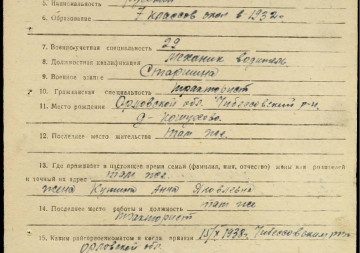 5. Национальность русский
6. Образование 7 классов окон в 1932г.
7. Военноучетная специальность 29
8. Должностная квалификация Механик водитель
9. Военное звание Старшина
10. Гражданская специальность тракторист
11. Место рождения Орловской обл.
д.
12. Последнее место жительства там же.
13. Где проживает в настоящее время семья (фамилия, имя, отчество) жены или родителей
и точный их адрес там же.
жена Анна Яковлевна
14. Последнее место работы и должность там же
тракторист
15. Каким райвоенкоматом и когда призван 15/X 1938г.
Орловской обл.